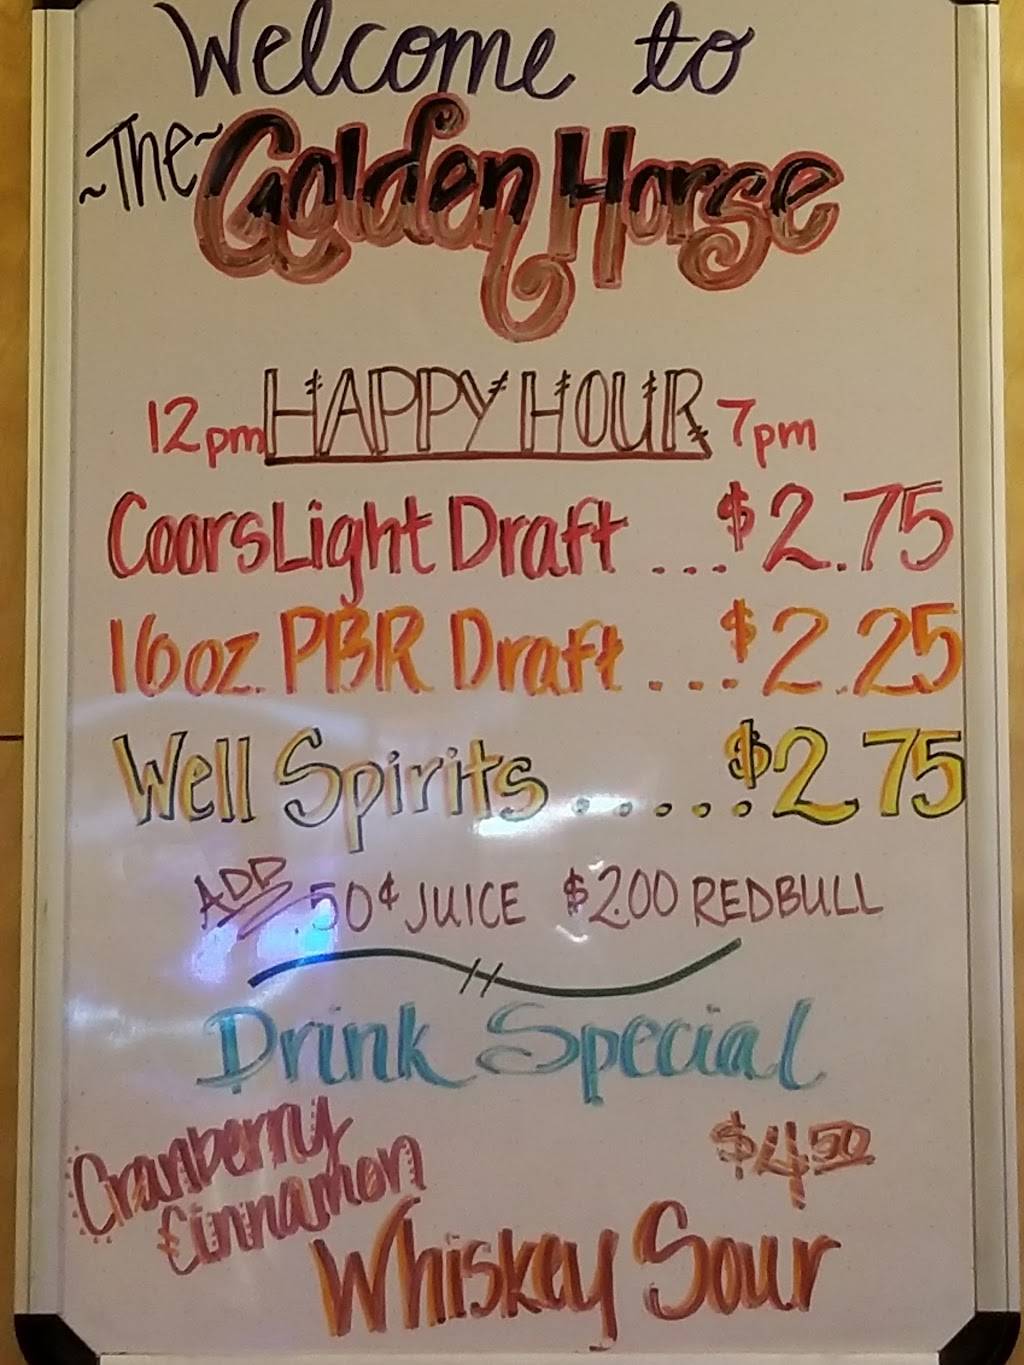 Welcome to
~The~ Golden Horse
12pm HAPPY HOUR 7pm
Coors Light Draft ... $2.75
16oz. PBR Draft .... $2.25
Well Spirits ..... $2.75
ADD .50¢ JUICE $2.00 REDBULL
Drink Special
Cranberry $4.50
Cinnamon
Whiskey Sour